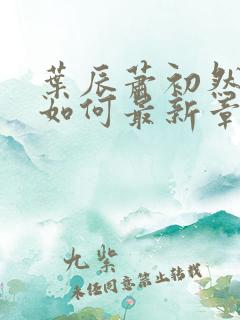 葉辰蕭初然
如何最新章
九紫
未经同意禁止转载